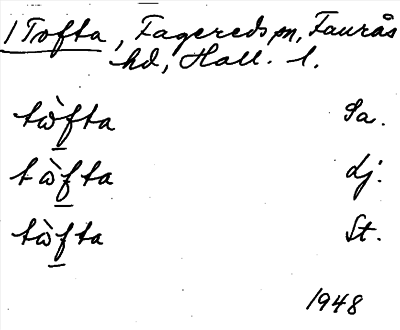 1 Tofta, Fagereds sn, Faurås
hd, Hall. l.
tὼfta Sa.
tὼfta dj.
tὼfta St.
1948